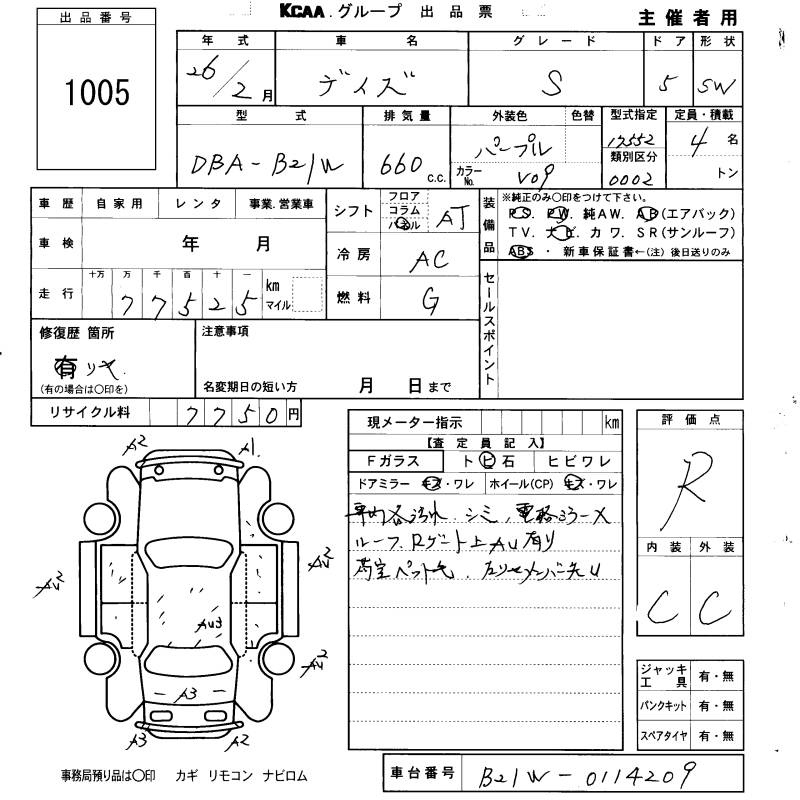 出品番号 KCAA.グループ 出品票 主催者用
1005
年式 車名 グレード ドア 形状
26/2月 デイズ S 5 SW
型式 排気量 外装色 色替 型式指定 定員・積載
DBA-B21W 660 c.c. パープル 17552 4 名
カラーNo. V09 類別区分 0002 トン
車歴 自家用 レンタ 事業.営業車
シフト フロア コラム パネル AT
装備品 ※純正のみ〇印をつけて下さい。
PS. PW. 純AW. AB(エアバック)
TV. ナビ. カワ. SR(サンルーフ)
ABS ・ 新車保証書←(注) 後日送りのみ
車検 年 月
冷房 AC
走行 十万 万 千 百 十 一 km マイル
77525
燃料 G
セールスポイント
修復歴 箇所 注意事項
有
(有の場合は〇印を) 名変期日の短い方 月 日まで
リサイクル料 7750円
現メーター指示 km
評価点
【査定員記入】
Fガラス ト ビ 石 ヒビワレ
R
ドアミラー キズ・ワレ ホイール(CP) キズ・ワレ
車内各汚れ シミ、電格ミラーX
ルーフ、Rゲート上AU有り
内装 外装
C C
A2 A1
AU2 AU2
AU3
AU2
A3
A3 A2
ジャッキ工具 有・無
パンクキット 有・無
スペアタイヤ 有・無
事務局預り品は〇印 カギ リモコン ナビロム
車台番号 B21W-0114209